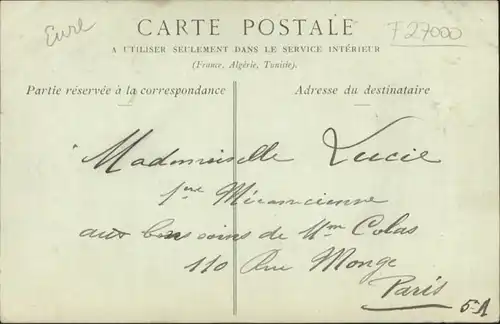 Eure
F 27000
CARTE POSTALE
A UTILISER SEULEMENT DANS LE SERVICE INTÉRIEUR
(France, Algérie, Tunisie).
Partie réservée à la correspondance
Adresse du destinataire
Mademoiselle Lucie
1ère Mécanicienne
aux bons soins de Mme Colas
110 Rue Monge
Paris
5e A